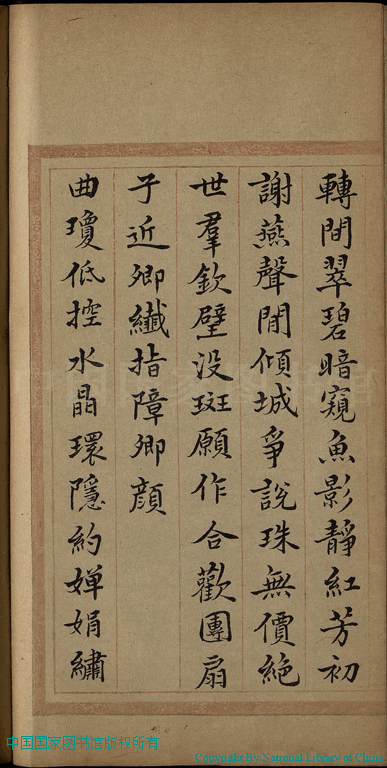 轉間翠碧暗窺魚影靜紅芳初
謝燕聲閒傾城爭說珠無價絕
世羣欽璧没斑願作合歡團扇
子近卿纖指障卿顔
曲瓊低控水晶環隱約嬋娟繡
中国国家图书馆版权所有
Copyright By National Library of China